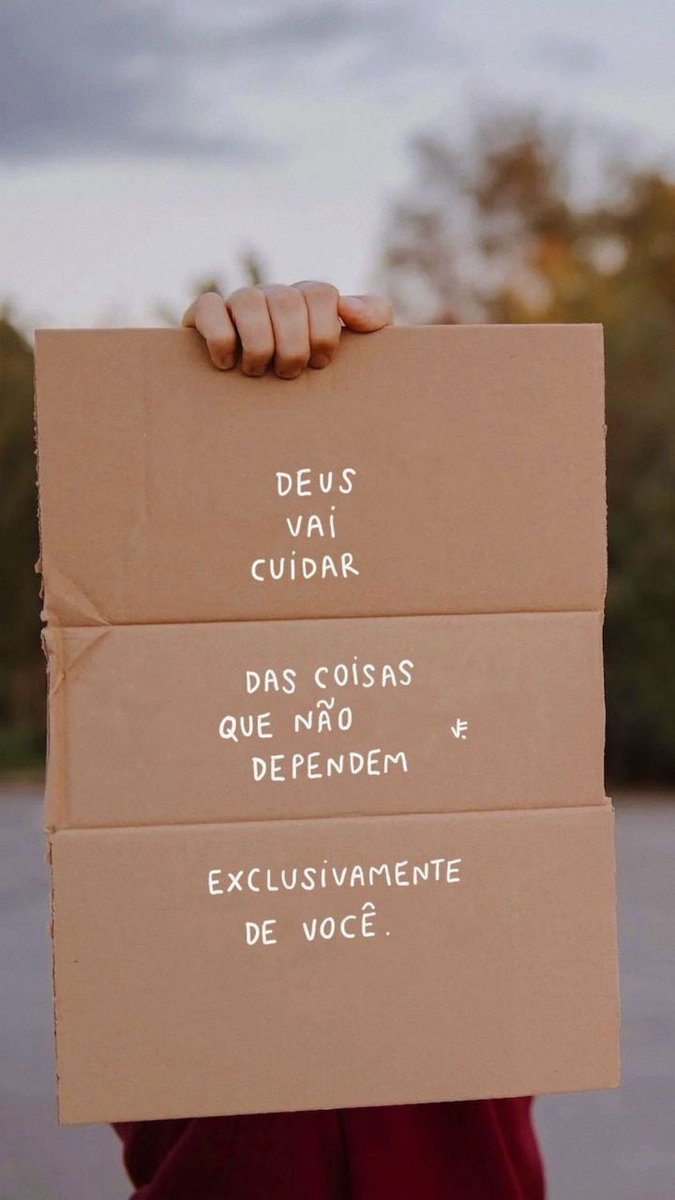 DEUS
VAI
CUIDAR
DAS COISAS
QUE NÃO
DEPENDEM
EXCLUSIVAMENTE
DE VOCÊ.